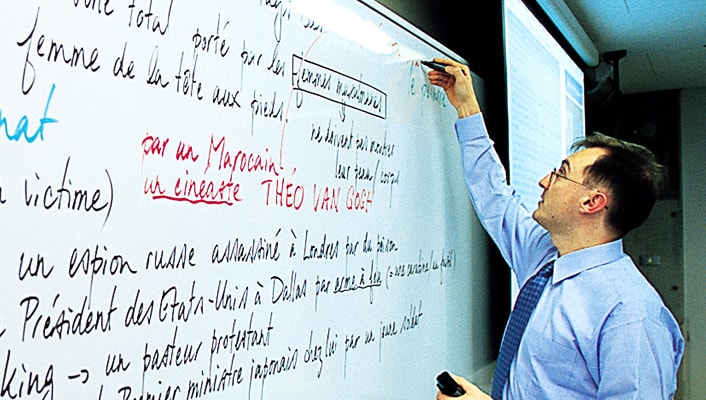 voile total porté par les
femme de la tête aux pieds.
femmes musulmanes
ne doivent pas montrer
leur corps
nat
par un Marocain
un cinéaste THÉO VAN GOGH
victime)
un espion russe assassiné à Londres par du poison
Président des Etats-Unis à Dallas par arme à feu (= une carabine / un fusil)
king → un pasteur protestant
Premier ministre japonais chez lui par un jeune soldat